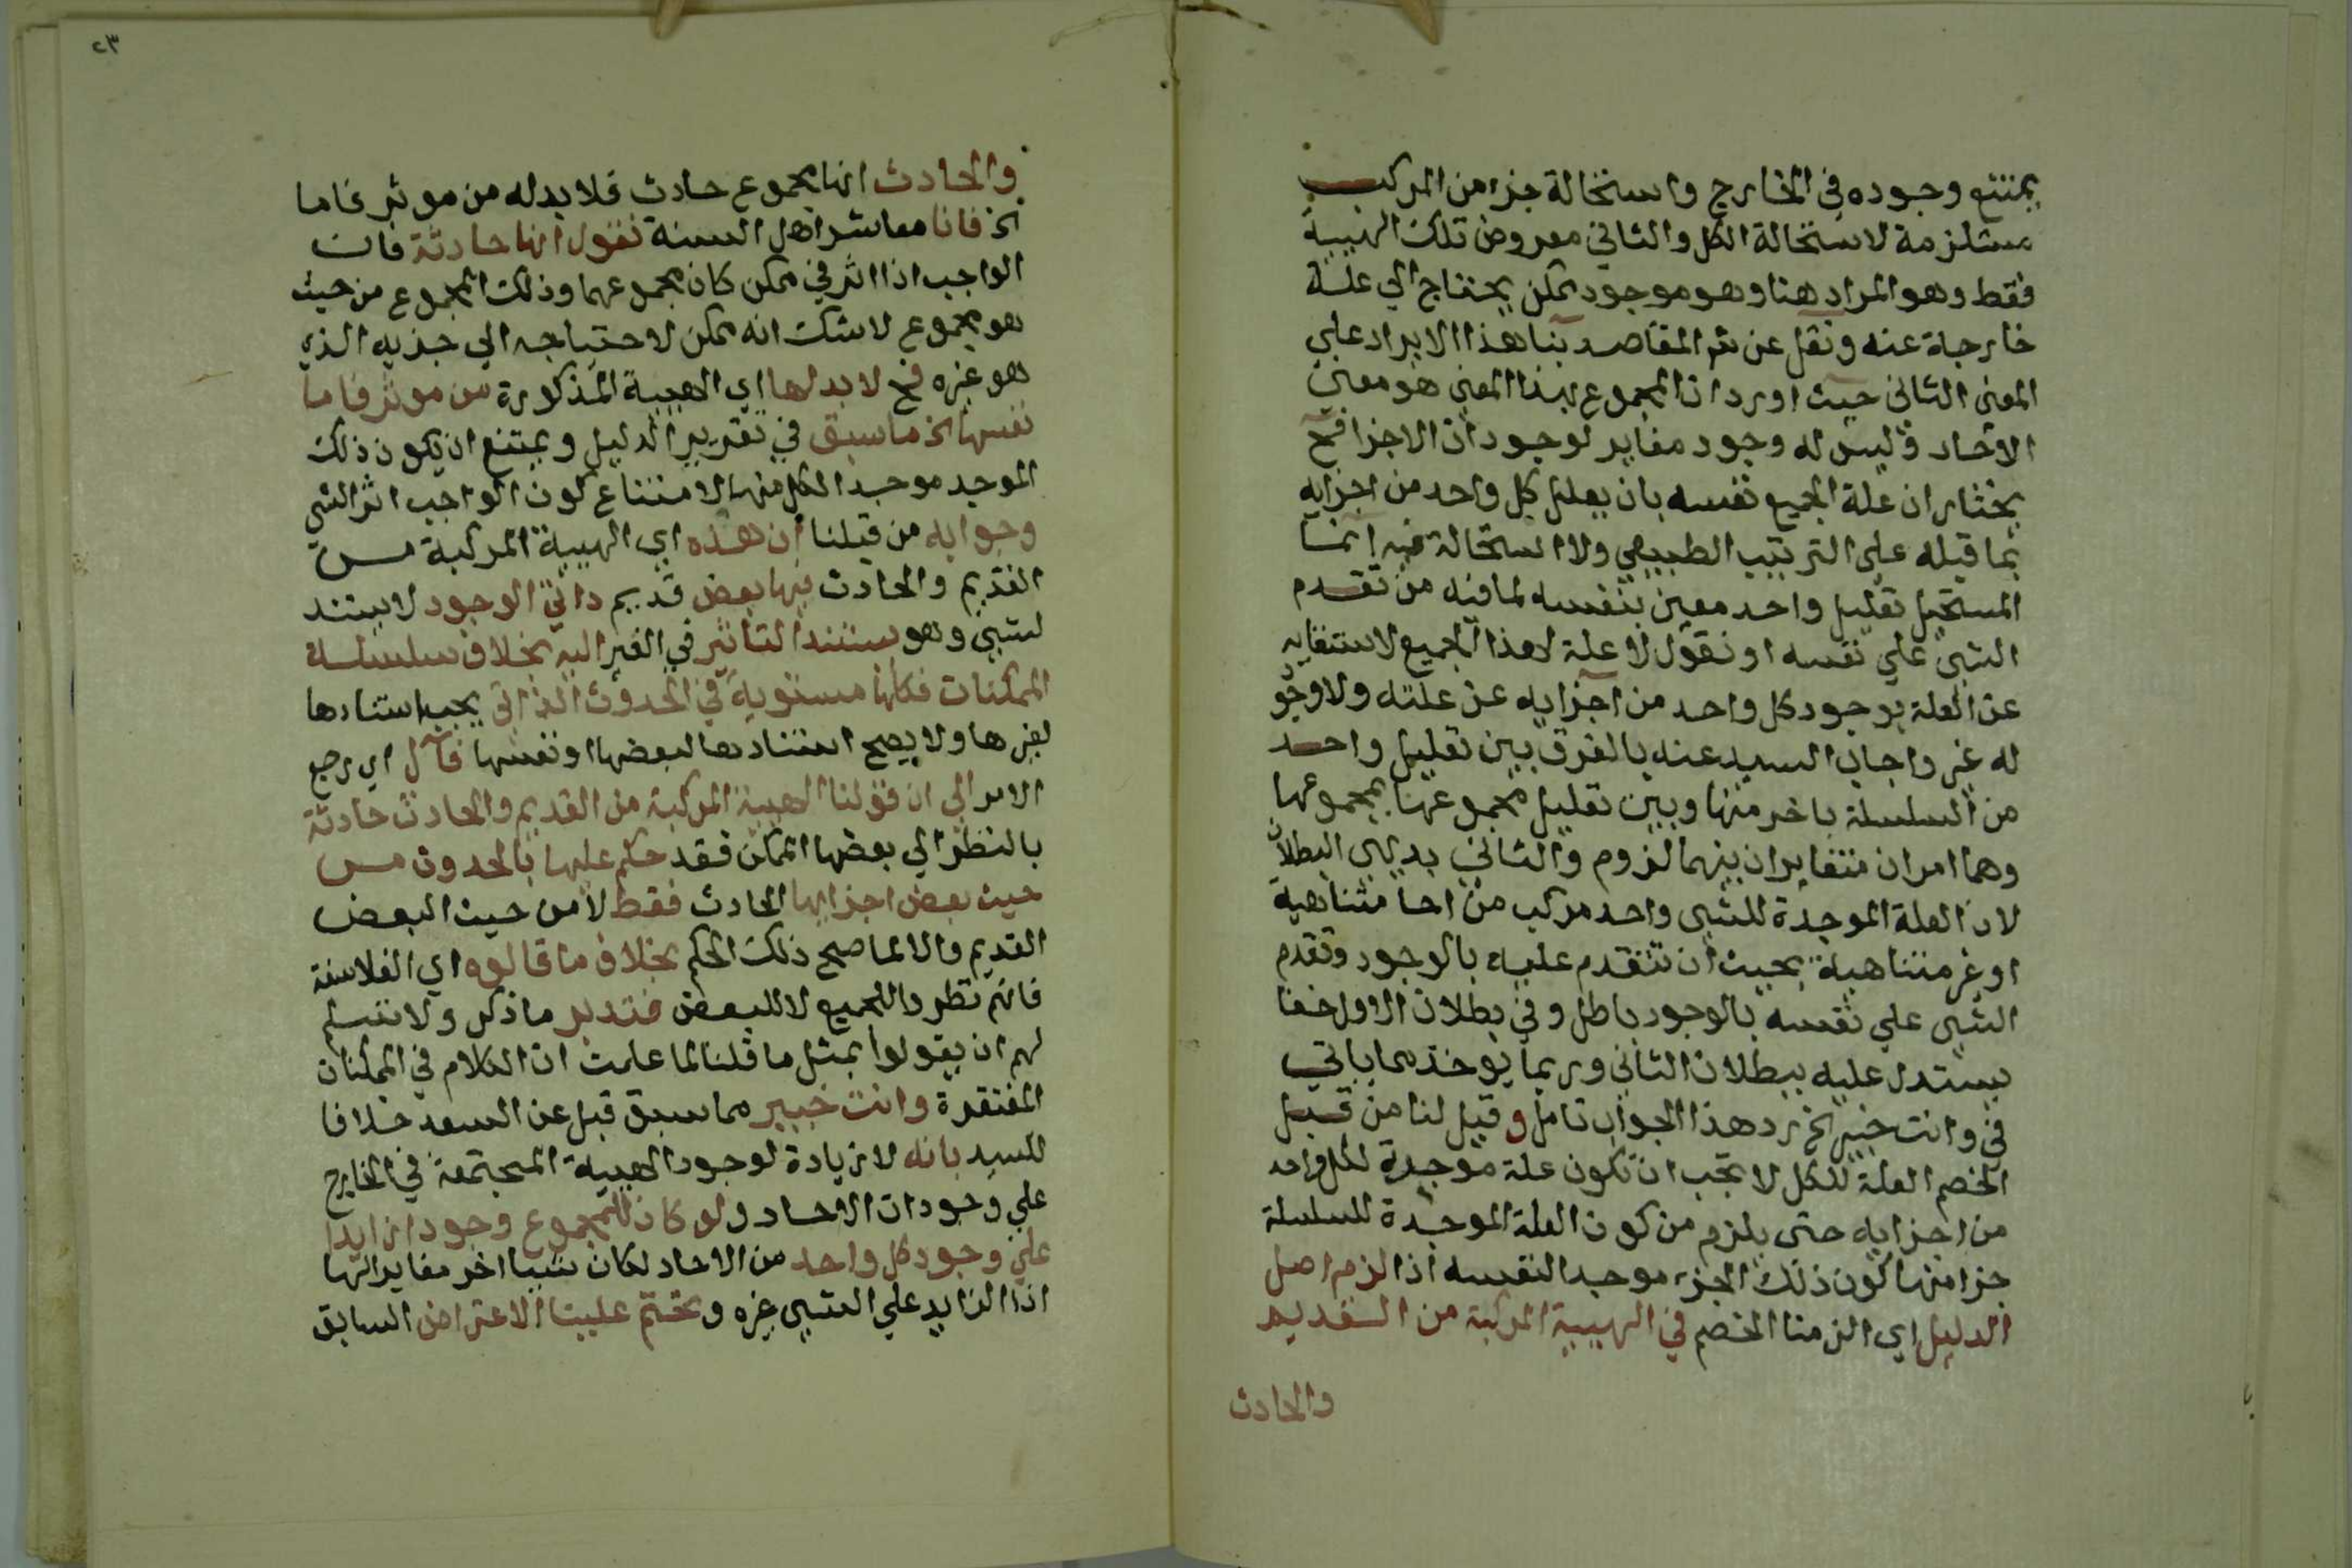 يمتنع وجوده في الخارج واستحالة جزء من المركب
مستلزمة لاستحالة الكل والثاني معروض تلك الهيية
فقط وهو المراد هنا وهو موجود ممكن يحتاج الي علة
خارجة عنه ونقل عن شر المقاصد بنا هذا الايراد علي
المعنى الثاني حيث اورد ان المجموع بهذا المعنى هو معنى
الاحاد وليس له وجود مغاير لوجودات الاجزا فح
يختار ان علة الجميع نفسه بان يعلل كل واحد من اجزايه
بما قبله على الترتيب الطبيعي ولا استحالة فيه انما
المستحيل تعليل واحد معين بنفسه لما فيه من تقدم
الشي علي نفسه او نقول لا علة لهذا الجميع لاستغنايه
عن العلة بوجود كل واحد من اجزايه عن علته ولا وجو
له غير واجاب السيد عنه بالفرق بين تعليل واحد
من السلسلة باخر منها وبين تعليل مجموعها بمجموعها
وهما امران متغايران بينهما لزوم والثاني بديهي البطلان
لان العلة الموجدة للشي واحد مركب من احا متناهية
او غير متناهية بحيث ان تتقدم عليه بالوجود وتقدم
الشي علي نفسه بالوجود باطل وفي بطلان الاول خفا
يستدل عليه ببطلان الثاني وربما يوخذ مما ياتي
في وانت خبير الخ رد هذا الجواب تامل وقيل لنا من قبل
الخصم العلة للكل لا يجب ان تكون علة موجدة لكل واحد
من اجزايه حتى يلزم من كون العلة الموجدة للسلسلة
جزا منها كون ذلك الجزء موجدا لنفسه اذا لزم اصل
الدليل اي الزمنا الخصم في الهيية المركبة من القديم
والحادث
٢٣
والحادث انها مجموع حادث فلا بد له من موثر فاما
الخ فانا معاشر اهل السنة نقول انها حادثة فان
الواجب اذا اثر في ممكن كان مجموعهما وذلك المجموع من حيث
هو مجموع لا شك انه ممكن لاحتياجه الي جزيه الذي
هو غيره فح لا بد لها اي الهيية المذكورة من موثر فاما
نفسها الخ ما سبق في تقرير الدليل ويمتنع ان يكون ذلك
الموجد موجدا لكل منها لامتناع كون الواجب اثر الشي
وجوابه من قبلنا ان هذه اي الهيية المركبة من
القديم والحادث فيها بعض قديم ذاتي الوجود لا يستند
لشي وهو مستند التاثير في الغير اليه بخلاف سلسلة
الممكنات فكلها مستوية في الحدوث الذاتي يجب استنادها
لغيرها ولا يصح استنادها لبعضها او نفسها فآل اي رجع
الامر الي ان قولنا الهيية المركبة من القديم والحادث حادثة
بالنظر الي بعضها الممكن فقد حكم عليها بالحدوث من
حيث بعض اجزايها الحادث فقط لا من حيث البعض
القديم والا لما صح ذلك الحكم بخلاف ما قالوه اي الفلاسفة
فانهم نظروا للجميع لا للبعض فتدبر ما ذكر ولا نسلم
لهم ان يقولوا بمثل ما قلنا لما علمت ان الكلام في الممكنات
المفتقرة وانت خبير مما سبق قبل عن السعد خلافا
للسيد بانه لا زيادة لوجود الهيية المجتمعة في الخارج
علي وجودات الاحاد ولو كان للمجموع وجودا زايدا
علي وجود كل واحد من الاحاد لكان شييا اخر مغايرا لها
اذ الزايد علي الشي غيره وتختم علينا الاعتراض السابق